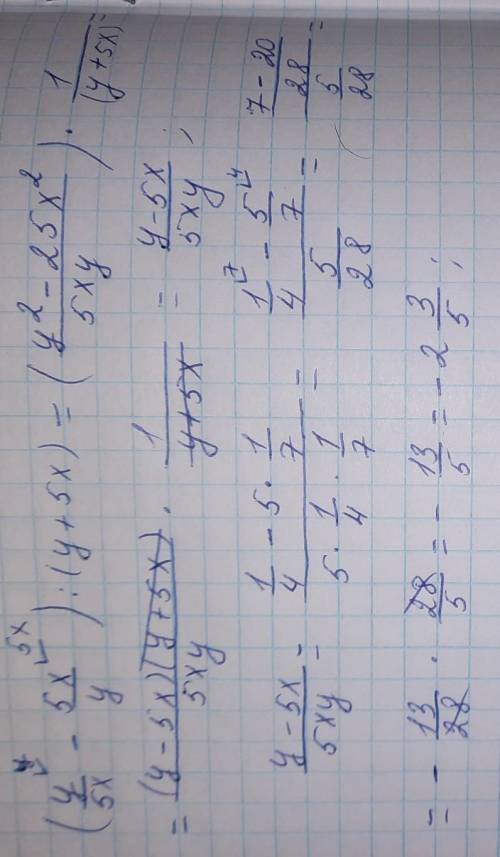 (y/5x - 5x/y) : (y + 5x) = (y² - 25x² / 5xy) · 1/(y+5x) =
= (y - 5x)(y + 5x) / 5xy · 1/y+5x = y-5x / 5xy ;
y - 5x / 5xy = 1/4 - 5 · 1/7 / 5 · 1/4 · 1/7 = 1/4 - 5/7 / 5/28 = 7 - 20 / 28 / 5/28 =
= - 13/28 · 28/5 = - 13/5 = - 2 3/5 ;